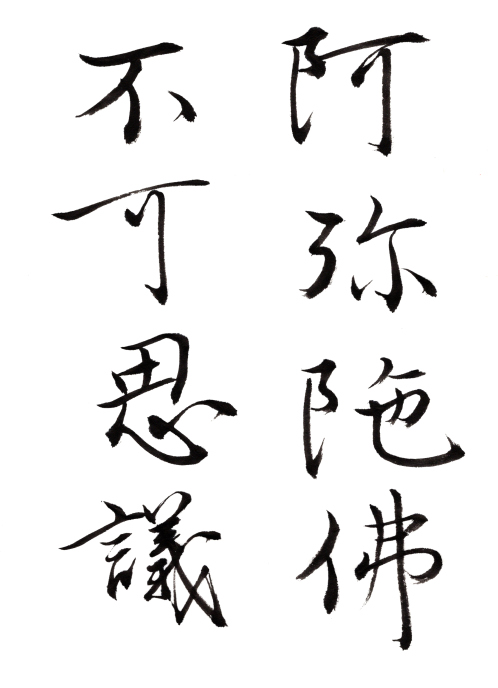 阿弥陁佛
不可思議